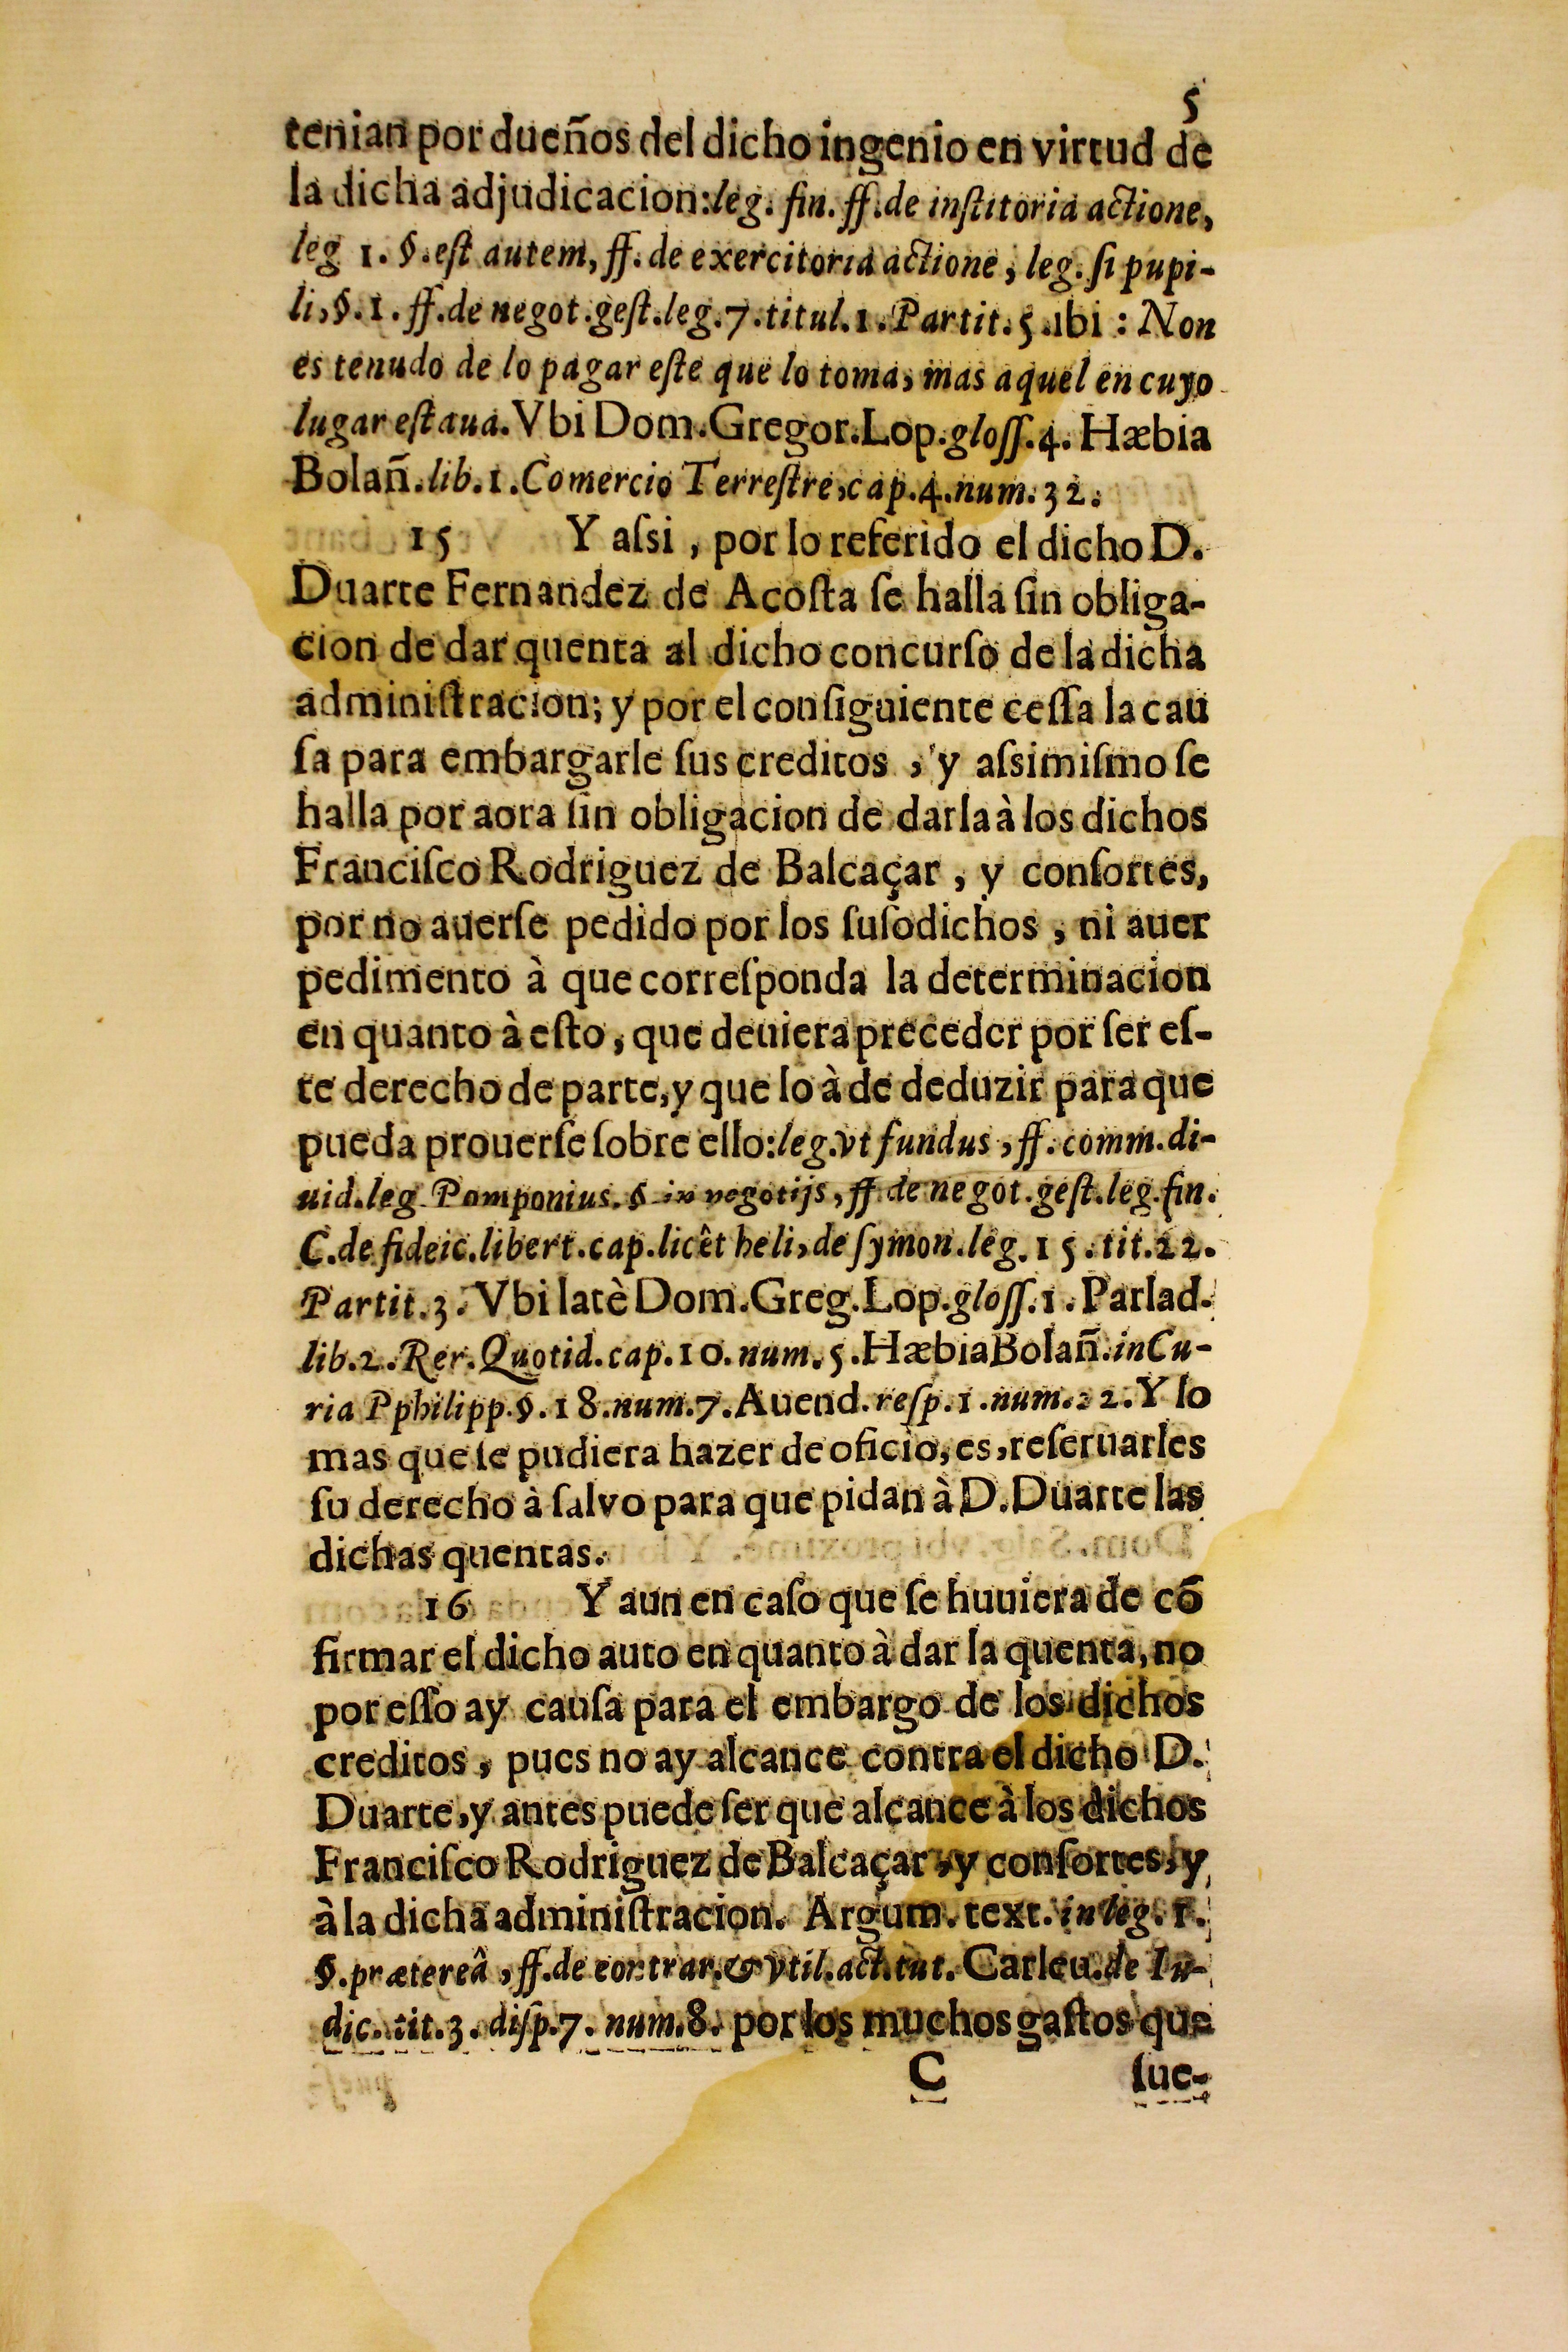 5
tenian por dueños del dicho ingenio en virtud de
la dicha adjudicacion: leg. fin. ff. de inſtitoria actione,
leg 1. §. eſt autem, ff. de exercitoria actione, leg. ſi pupi-
li, §. 1. ff. de negot. geſt. leg. 7. titul. 1. Partit. 5. ibi : Non
es tenudo de lo pagar eſte que lo toma, mas aquel en cuyo
lugar eſtaua. Vbi Dom. Gregor. Lop. gloſſ. 4. Hæbia
Bolañ. lib. 1. Comercio Terreſtre, cap. 4. num. 32.
15 Y aſsi, por lo referido el dicho D.
Duarte Fernandez de Acoſta ſe halla ſin obliga-
cion de dar quenta al dicho concurſo de la dicha
adminiſtracion; y por el conſiguiente ceſſa la cau
ſa para embargarle ſus creditos, y aſsimiſmo ſe
halla por aora ſin obligacion de darla à los dichos
Franciſco Rodriguez de Balcaçar, y conſortes,
por no auerſe pedido por los ſuſodichos, ni auer
pedimento à que correſponda la determinacion
en quanto à eſto, que deuiera preceder por ſer eſ-
te derecho de parte, y que lo à de deduzir para que
pueda prouerſe ſobre ello: leg. vt fundus, ff. comm. di-
uid. leg. Pomponius. § in negotijs, ff. de negot. geſt. leg. fin.
C. de fideic. libert. cap. licêt heli, de ſymon. leg. 15. tit. 22.
Partit. 3. Vbi latè Dom. Greg. Lop. gloſſ. 1. Parlad.
lib. 2. Rer. Quotid. cap. 10. num. 5. Hæbia Bolañ. in Cu-
ria Pphilipp. §. 18. num. 7. Auend. reſp. 1. num. 22. Y lo
mas que ſe pudiera hazer de oficio, es, reſeruarles
ſu derecho à ſalvo para que pidan à D. Duarte las
dichas quentas.
16 Y aun en caſo que ſe huuiera de cõ
firmar el dicho auto en quanto à dar la quenta, no
por eſſo ay cauſa para el embargo de los dichos
creditos, pues no ay alcance contra el dicho D.
Duarte, y antes puede ſer que alcance à los dichos
Franciſco Rodriguez de Balcaçar, y conſortes, y
à la dicha adminiſtracion. Argum. text. in leg. 1.
§. prætereâ, ff. de contrar. & vtil. act. tut. Carleu. de Iu-
dic. tit. 3. diſp. 7. num. 8. por los muchos gaſtos que
C ſue-